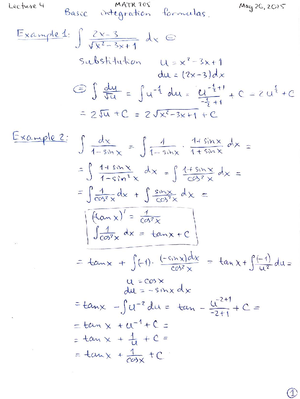 Lecture 4 MATH 705 May 26, 2015
Basic integration formulas.
Example 1: ∫ (2x-3)/√(x²-3x+1) dx ⊜
substitution u = x²-3x+1
du = (2x-3)dx
⊜ ∫ du/√u = ∫ u^(-1/2) du = u^(-1/2+1)/(-1/2+1) + C = 2u^(1/2) + C
= 2√u + C = 2√(x²-3x+1) + C
Example 2: ∫ dx/(1-sinx) = ∫ 1/(1-sinx) · (1+sinx)/(1+sinx) dx =
= ∫ (1+sinx)/(1-sin²x) dx = ∫ (1+sinx)/cos²x dx =
= ∫ 1/cos²x dx + ∫ sinx/cos²x dx =
(tanx)' = 1/cos²x
∫ 1/cos²x dx = tanx + C
= tanx + ∫(-1)·(-sinx)dx/cos²x = tanx + ∫ (-1)/u² du =
u = cosx
du = -sinx dx
= tanx - ∫ u^(-2) du = tan - u^(-2+1)/(-2+1) + C =
= tanx + u^(-1) + C =
= tanx + 1/u + C =
= tanx + 1/cosx + C
1